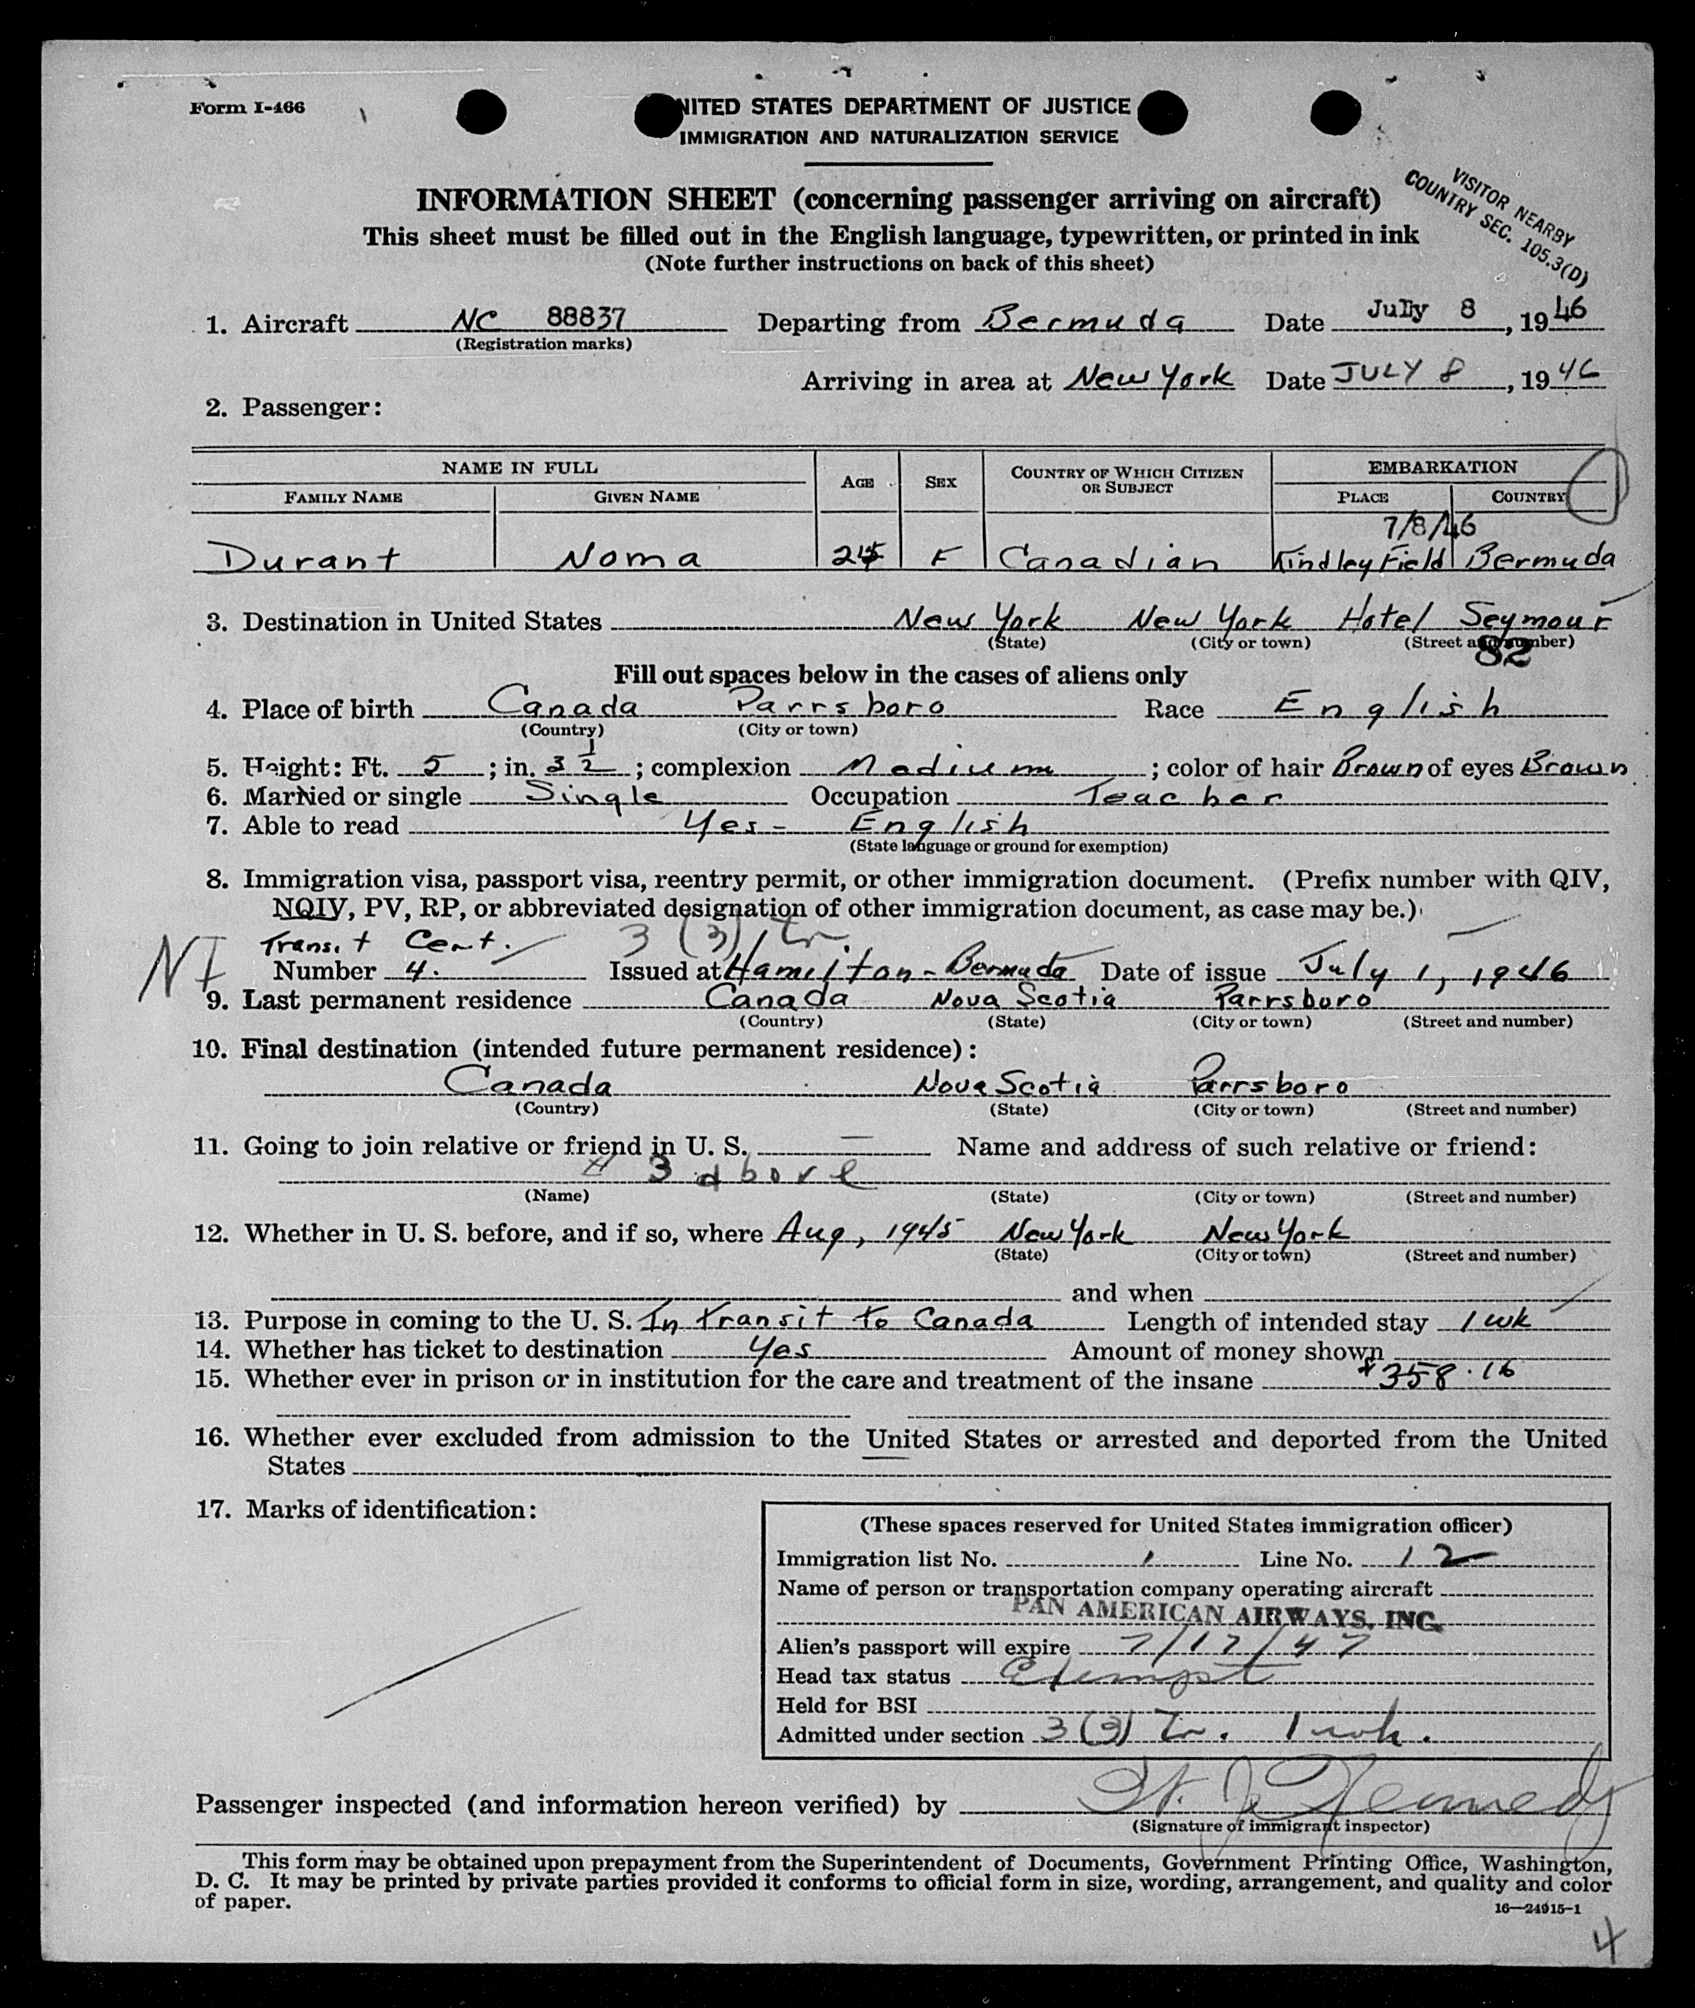 Form I-466
UNITED STATES DEPARTMENT OF JUSTICE
IMMIGRATION AND NATURALIZATION SERVICE
INFORMATION SHEET (concerning passenger arriving on aircraft)
VISITOR NEARBY
COUNTRY SEC. 105.3(D)
This sheet must be filled out in the English language, typewritten, or printed in ink
(Note further instructions on back of this sheet)
1. Aircraft NC 88837 Departing from Bermuda Date July 8, 1946
(Registration marks)
Arriving in area at New York Date JULY 8, 1946
2. Passenger:
NAME IN FULL AGE SEX COUNTRY OF WHICH CITIZEN OR SUBJECT EMBARKATION
FAMILY NAME GIVEN NAME PLACE COUNTRY
7/8/46
Durant Noma F Canadian Kindley Field Bermuda
3. Destination in United States New York New York Hotel Seymour
(State) (City or town) (Street and number)
82
Fill out spaces below in the cases of aliens only
4. Place of birth Canada Parrsboro Race English
(Country) (City or town)
5. Height: Ft. 5; in. 3 1/2; complexion Medium; color of hair Brown of eyes Brown
6. Married or single Single Occupation Teacher
7. Able to read Yes - English
(State language or ground for exemption)
8. Immigration visa, passport visa, reentry permit, or other immigration document. (Prefix number with QIV,
NQIV, PV, RP, or abbreviated designation of other immigration document, as case may be.)
Transit Cert. 3 (3) Tr.
NI
Number 4. Issued at Hamilton - Bermuda Date of issue July 1, 1946
9. Last permanent residence Canada Nova Scotia Parrsboro
(Country) (State) (City or town) (Street and number)
10. Final destination (intended future permanent residence):
Canada Nova Scotia Parrsboro
(Country) (State) (City or town) (Street and number)
11. Going to join relative or friend in U. S. — Name and address of such relative or friend:
# 3 above
(Name) (State) (City or town) (Street and number)
12. Whether in U. S. before, and if so, where Aug, 1945 New York New York
(State) (City or town) (Street and number)
and when
13. Purpose in coming to the U. S. In transit to Canada Length of intended stay 1 wk
14. Whether has ticket to destination Yes Amount of money shown
15. Whether ever in prison or in institution for the care and treatment of the insane $358.16
16. Whether ever excluded from admission to the United States or arrested and deported from the United
States
17. Marks of identification:
(These spaces reserved for United States immigration officer)
Immigration list No. 1 Line No. 12
Name of person or transportation company operating aircraft
PAN AMERICAN AIRWAYS, INC.
Alien's passport will expire 7/17/47
Head tax status Exempt
Held for BSI
Admitted under section 3 (3) Tr. 1 wk.
Passenger inspected (and information hereon verified) by J. Kennedy
(Signature of immigrant inspector)
This form may be obtained upon prepayment from the Superintendent of Documents, Government Printing Office, Washington,
D. C. It may be printed by private parties provided it conforms to official form in size, wording, arrangement, and quality and color
of paper.
16—24915-1
4